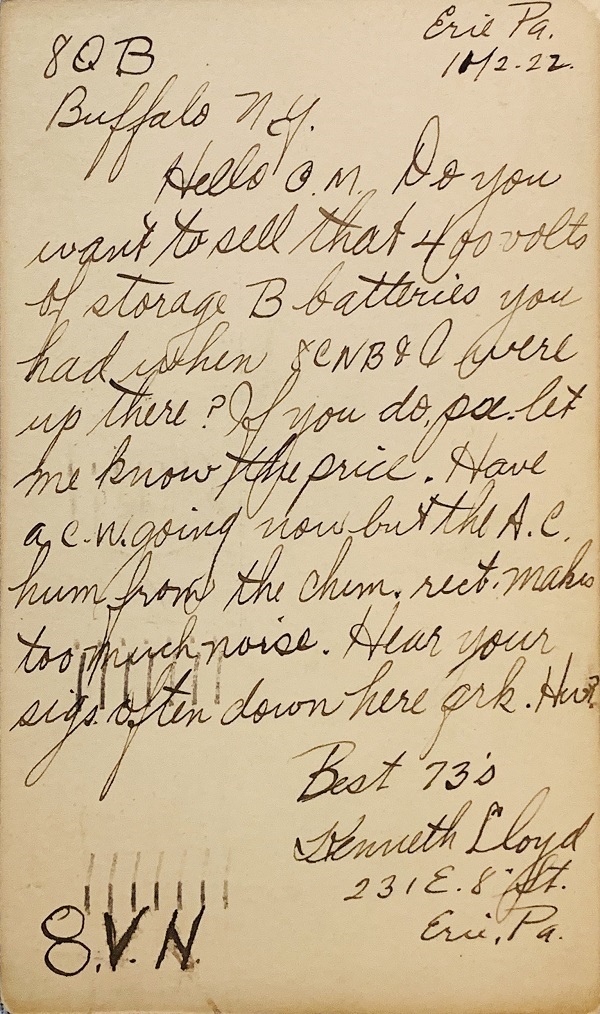 Erie Pa.
8QB
11/2-22.
Buffalo N.Y.
Hello O.M. Do you
want to sell that 400 volts
of storage B batteries you
had when 8CNB & I were
up there? If you do, pse. let
me know the price. Have
a C.W. going now but the A.C.
hum from the chem. rect. makes
too much noise. Hear your
sigs. often down here qrk. Hw?
Best 73's
Kenneth Lloyd
231 E. 8" St.
Erie, Pa.
8.V.N.